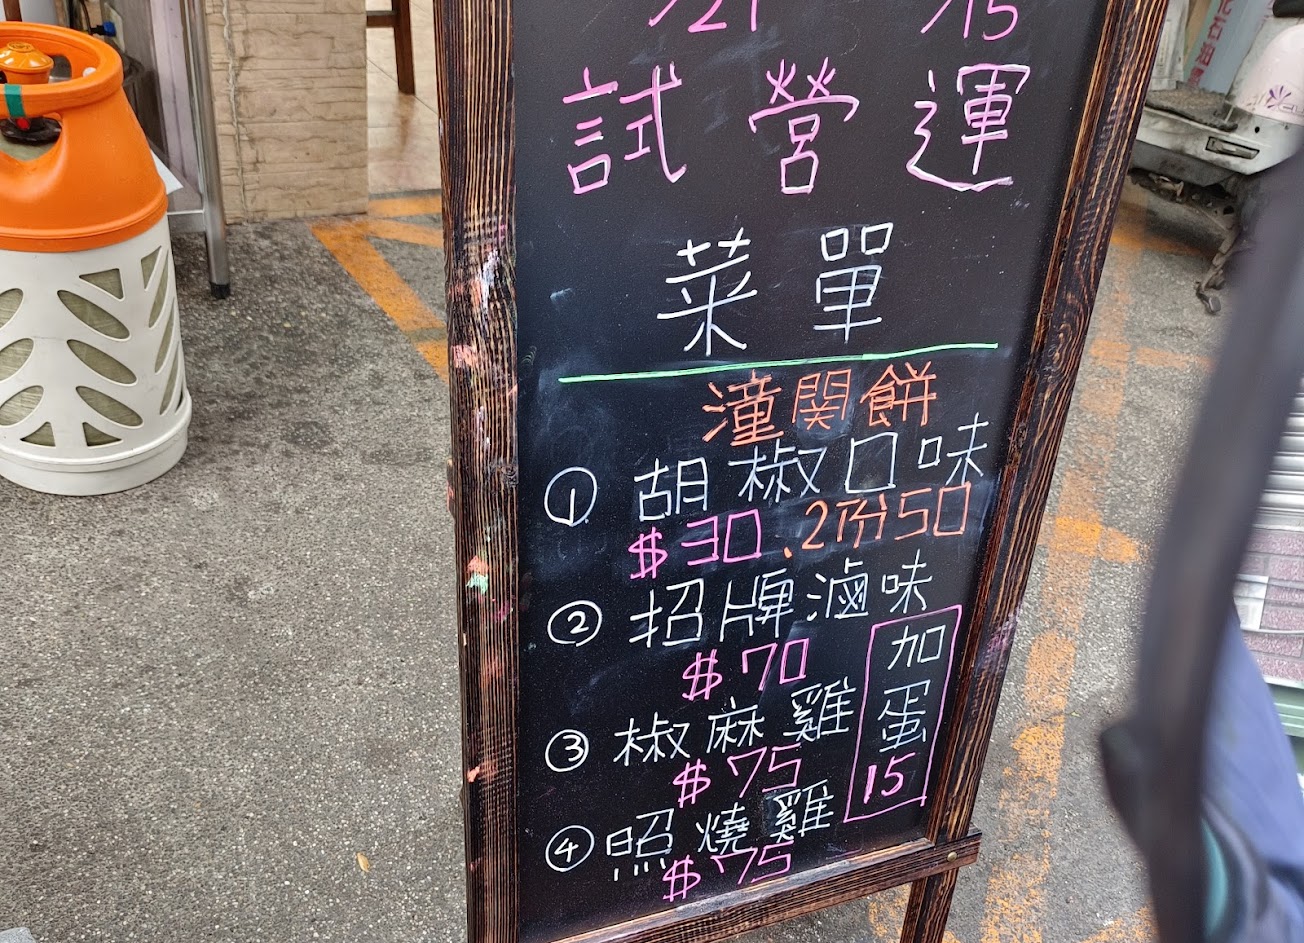 試營運
菜單
潼関餅
① 胡椒口味
$30.2份50
② 招牌滷味
$70
③ 椒麻雞
$75
④ 照燒雞
$75
加
蛋
15